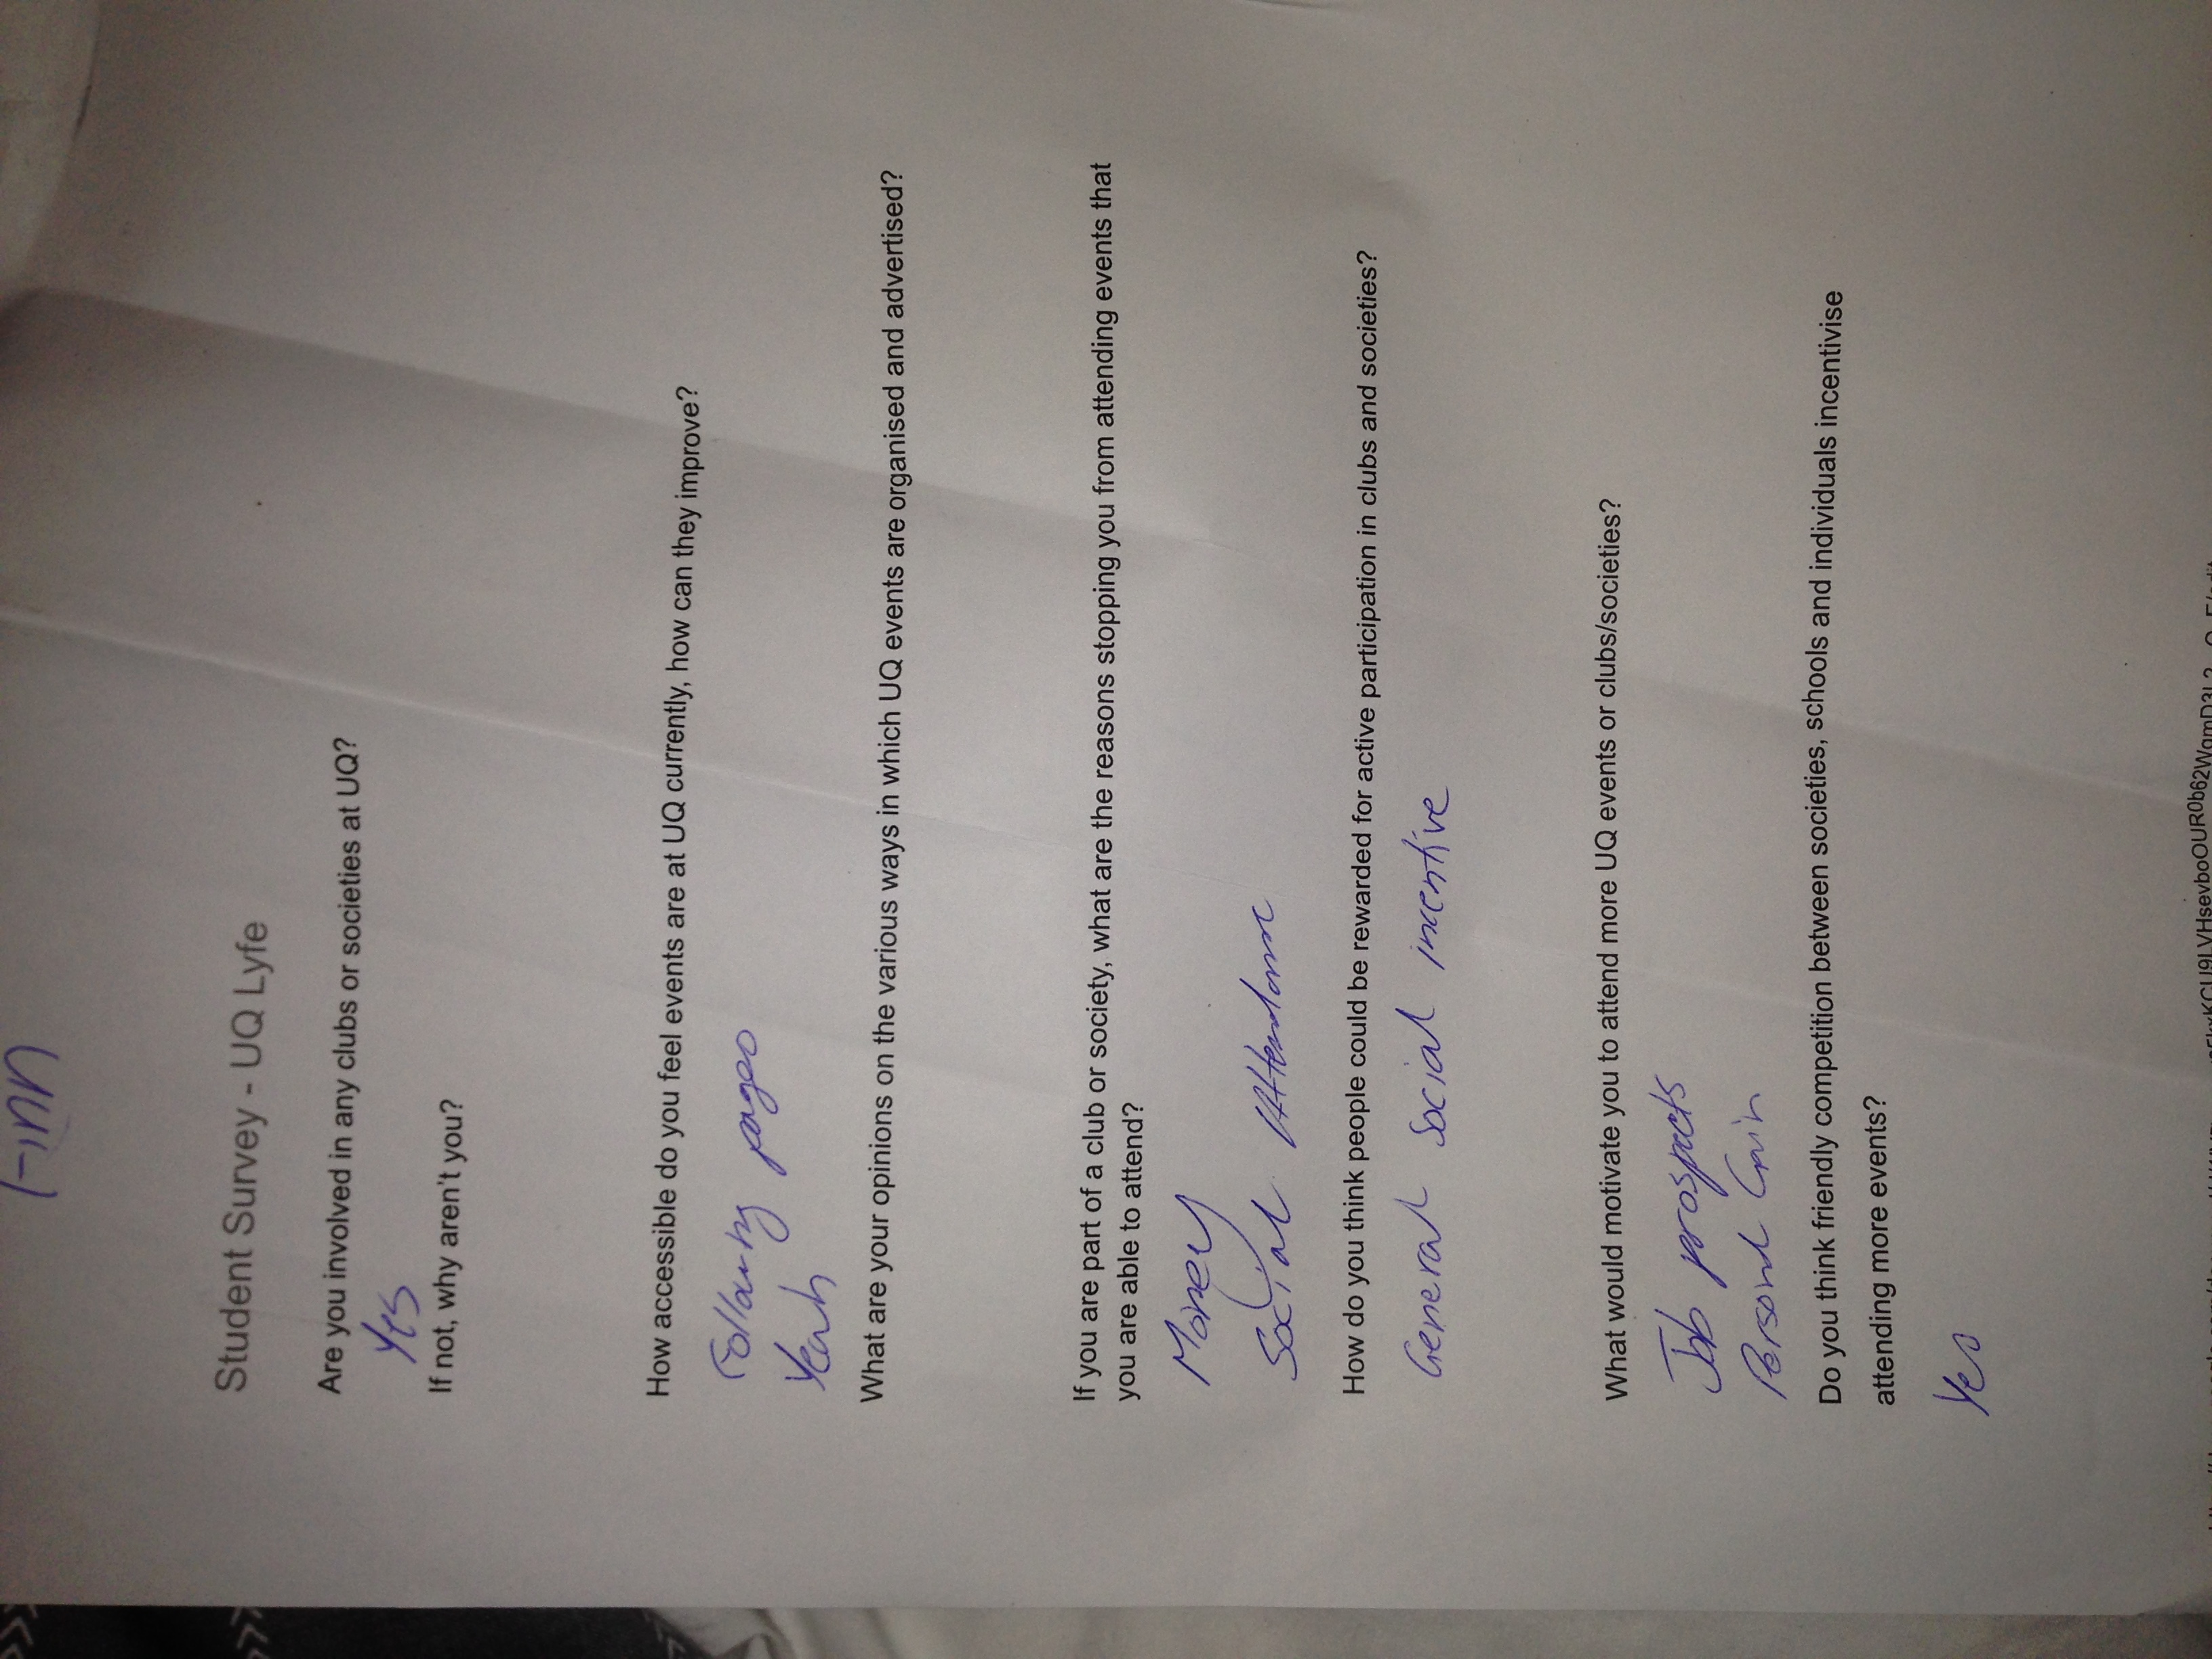 Finn
Student Survey - UQ Lyfe
Are you involved in any clubs or societies at UQ?
Yes
If not, why aren't you?
How accessible do you feel events are at UQ currently, how can they improve?
Following pages
Yeah
What are your opinions on the various ways in which UQ events are organised and advertised?
If you are part of a club or society, what are the reasons stopping you from attending events that
you are able to attend?
Money
Social Attendance
How do you think people could be rewarded for active participation in clubs and societies?
General Social incentive
What would motivate you to attend more UQ events or clubs/societies?
Job prospects
Personal Gain
Do you think friendly competition between societies, schools and individuals incentivise
attending more events?
Yes